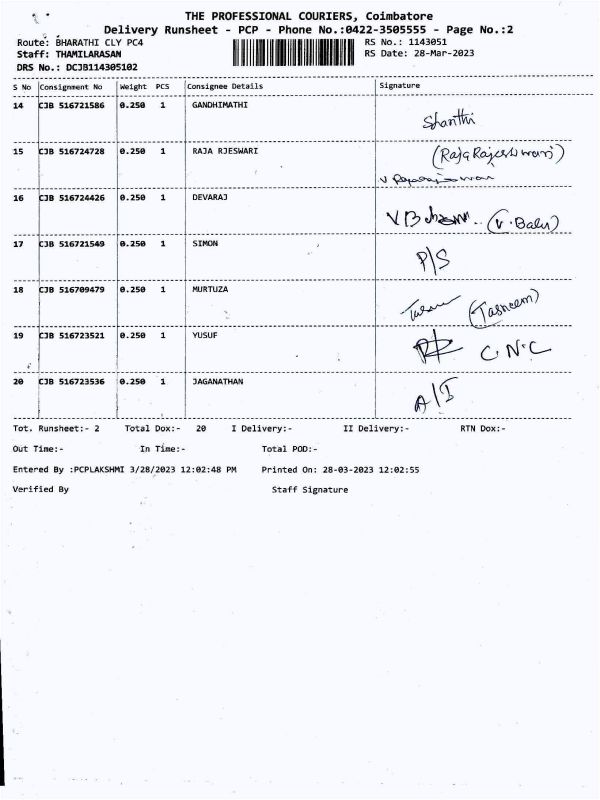 THE PROFESSIONAL COURIERS, Coimbatore
Delivery Runsheet - PCP - Phone No.:0422-3505555 - Page No.:2
Route: BHARATHI CLY PC4 RS No.: 1143051
Staff: THAMILARASAN RS Date: 28-Mar-2023
DRS No.: DCJB114305102
S No Consignment No Weight PCS Consignee Details Signature
14 CJB 516721586 0.250 1 GANDHIMATHI
Shanthi
15 CJB 516724728 0.250 1 RAJA RJESWARI (RajaRajeshwari)
16 CJB 516724426 0.250 1 DEVARAJ
(V.Balu)
17 CJB 516721549 0.250 1 SIMON
P/S
18 CJB 516709479 0.250 1 MURTUZA
(Tasneem)
19 CJB 516723521 0.250 1 YUSUF
C.N.C
20 CJB 516723536 0.250 1 JAGANATHAN
A/I
Tot. Runsheet:- 2 Total Dox:- 20 I Delivery:- II Delivery:- RTN Dox:-
Out Time:- In Time:- Total POD:-
Entered By :PCPLAKSHMI 3/28/2023 12:02:48 PM Printed On: 28-03-2023 12:02:55
Verified By Staff Signature